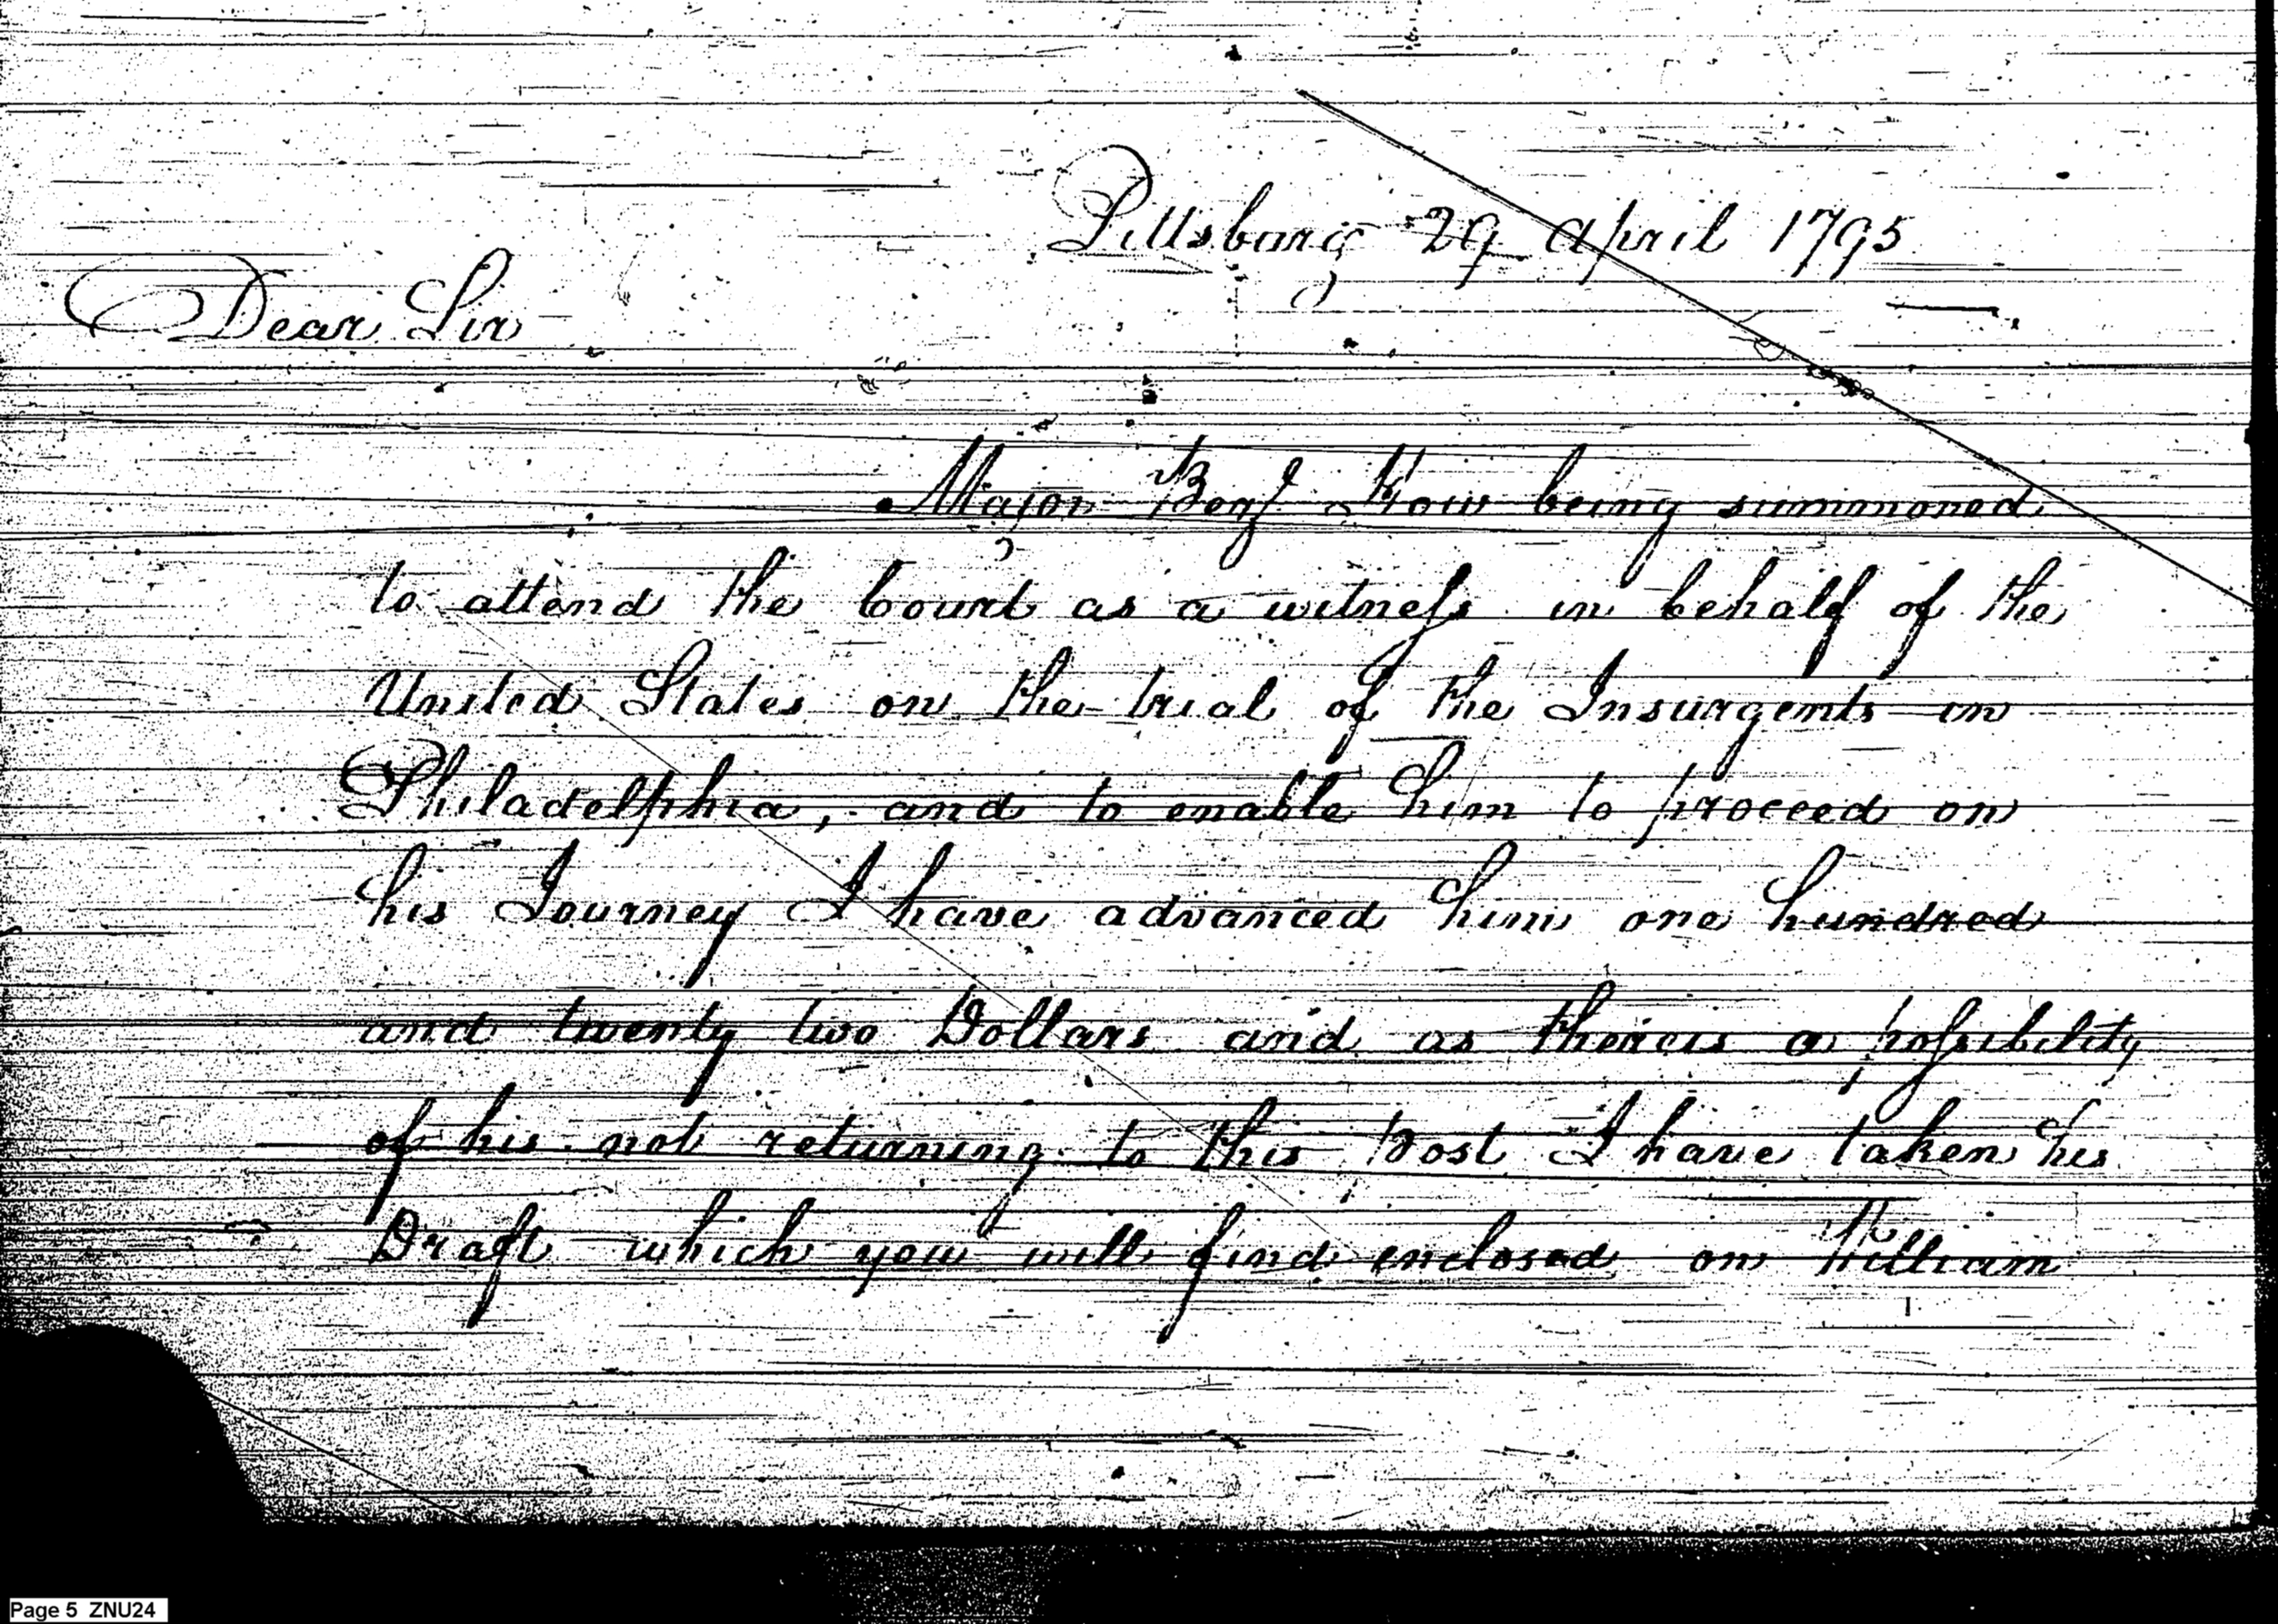 Pittsburg 29 April 1795
Dear Sir
Major Benj. being summoned
to attend the Court as a witness in behalf of the
United States on the trial of the Insurgents in
Philadelphia, and to enable him to proceed on
his Journey I have advanced him one hundred
and twenty two Dollars and as there is a possibility
of his not returning to this Post I have taken his
Draft which you will find enclosed on William
Page 5 ZNU24